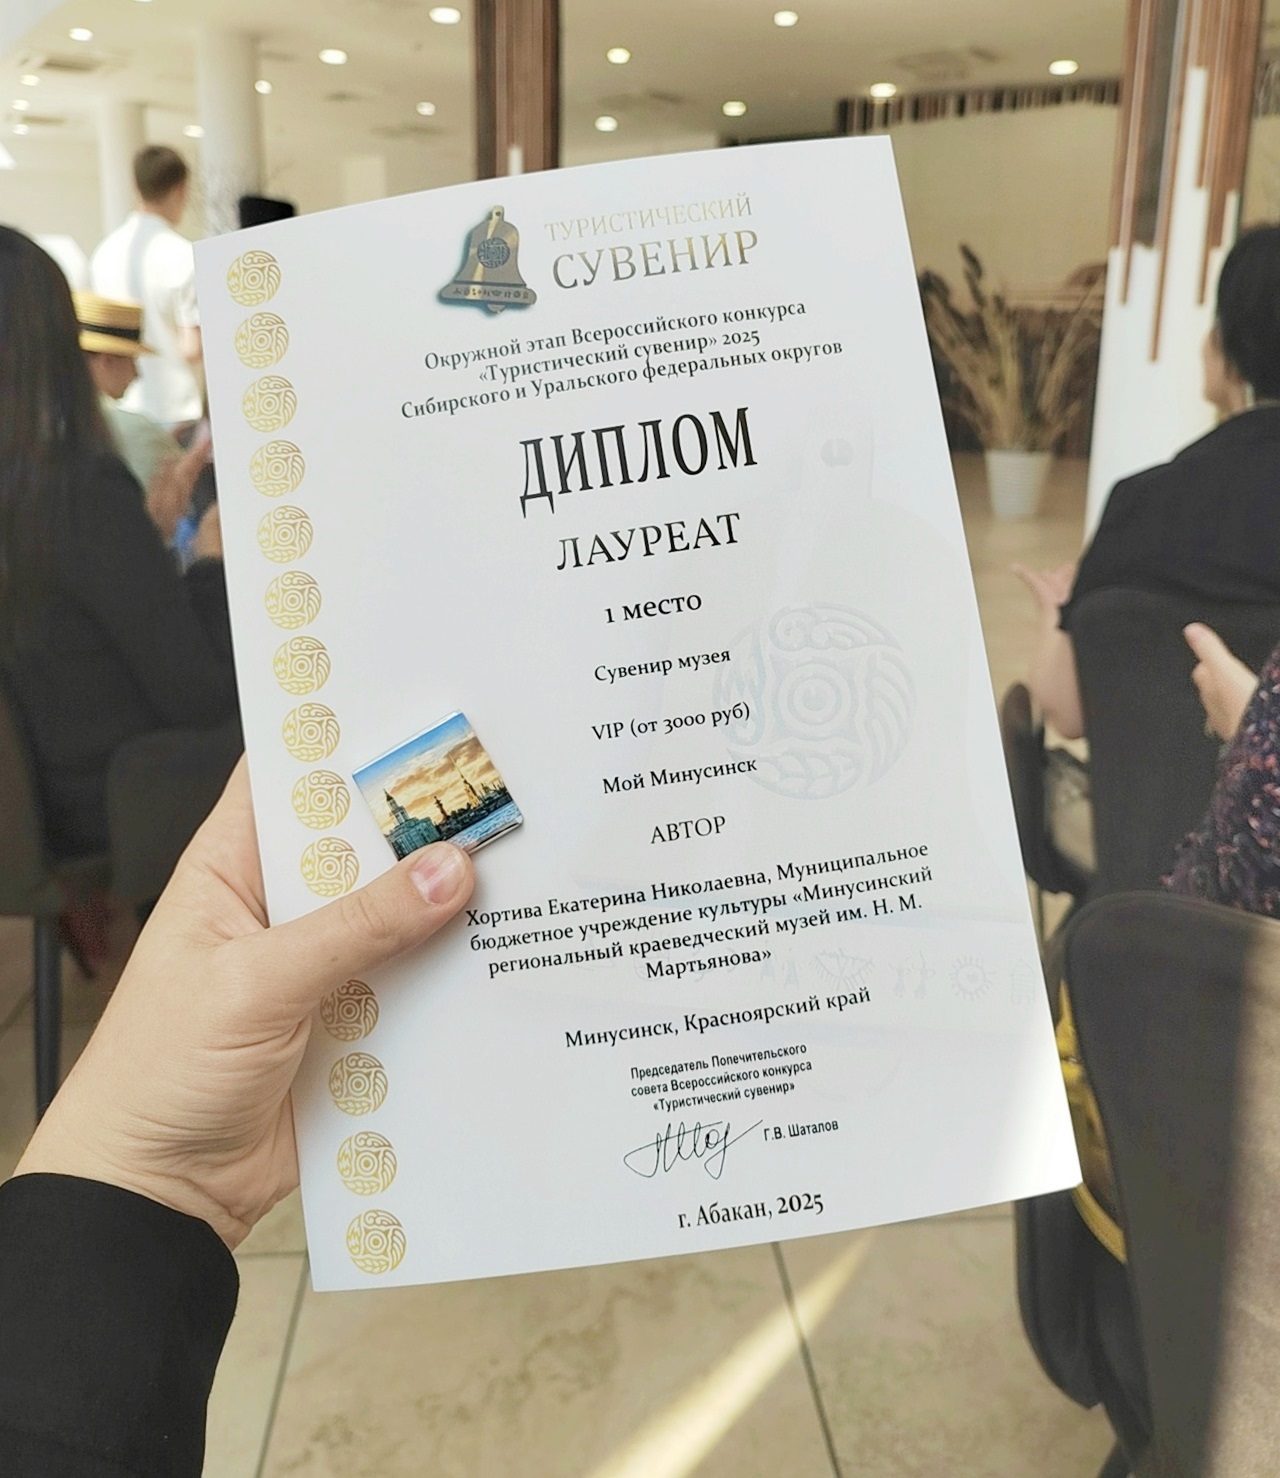 ТУРИСТИЧЕСКИЙ
СУВЕНИР
Окружной этап Всероссийского конкурса
«Туристический сувенир» 2025
Сибирского и Уральского федеральных округов
ДИПЛОМ
ЛАУРЕАТ
1 место
Сувенир музея
VIP (от 3000 руб)
Мой Минусинск
АВТОР
Хортива Екатерина Николаевна, Муниципальное
бюджетное учреждение культуры «Минусинский
региональный краеведческий музей им. Н. М.
Мартьянова»
Минусинск, Красноярский край
Председатель Попечительского
совета Всероссийского конкурса
«Туристический сувенир»
Г.В. Шаталов
г. Абакан, 2025